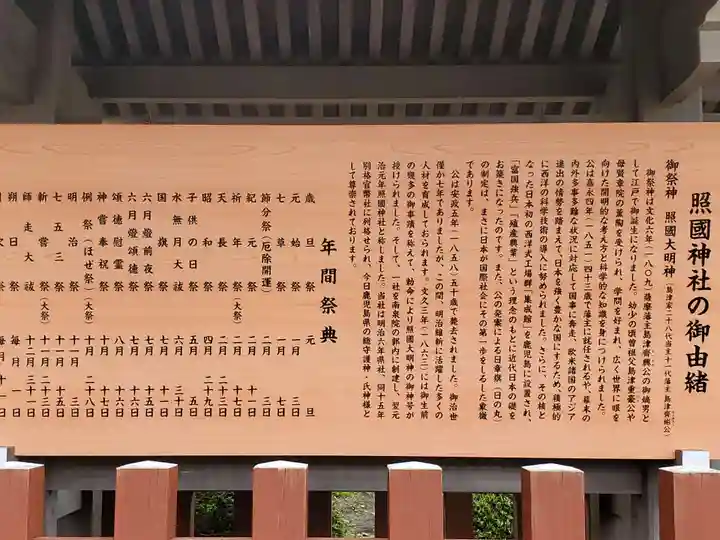 照國神社の御由緒
御祭神　照國大明神（島津家二十八代当主十一代藩主島津齊彬公）
御祭神は文化六年（一八〇九）薩摩藩主島津齊興公の御嫡男と
して江戸で御誕生になりました。幼少の頃曽祖父島津重豪公や
母賢章院の薫陶を受けられ、学問を好まれ、広く世界に眼を
向けた開明的な考え方と科学的な知識を身につけられました。
公は嘉永四年（一八五一）四十三歳で藩主に就任されるや、幕末の
内外多事多難な状況に対応して国事に奔走、欧米諸国のアジア
進出の情勢を踏まえて、日本を強く豊かな国にするため、積極的
に西洋の科学技術の導入に努められました。さらに、その核と
なった日本初の西洋式工場群「集成館」を鹿児島に設置され、
「富国強兵」「殖産興業」という理念のもとに近代日本の礎を
お築きになったのです。また、公の発案による日章旗（日の丸）
の制定は、まさに日本が国際社会にその第一歩をしるした象徴
であります。
公は安政五年（一八五八）五十歳で薨去されました。御治世
僅か七年でありましたが、この間、明治維新に活躍した多くの
人材を育成しておられます。文久三年（一八六三）には御生前
の幾多の御事蹟を称えて、勅命により照國大明神の御神号が
授けられました。そして、一社を南泉院の郭内に創建し、翌元
治元年照國神社と称しました。当社は明治六年県社、同十五年
別格官幣社に列格せられ、今日鹿児島県の総守護神・氏神様と
して尊崇されております。
年間祭典
歳旦祭　元旦
元始祭　一月三日
七草祭　一月七日
節分祭（厄除開運）　二月三日
紀元祭　二月十一日
祈年祭（大祭）
天長祭
昭和祭　四月二十九日
子供の日祭　五月五日
水無月大祓　六月三十日
国旗祭
六月燈前夜祭　七月十五日
六月燈頌徳祭　七月十六日
頌徳慰霊祭　八月十六日
神嘗奉祝祭　十月十七日
例祭（ほぜ祭）（大祭）　十月二十八日
明治祭　十一月三日
七五三祭　十一月十五日
新嘗祭（大祭）　十一月二十三日
師走大祓　十二月三十一日
朔日祭　毎月一日